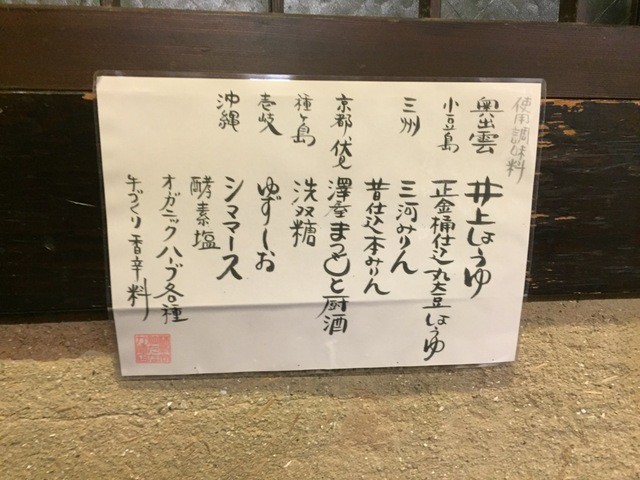 使用調味料
奥出雲 井上しょうゆ
小豆島 正金桶仕込丸大豆しょうゆ
三州 三河みりん
昔仕込本みりん
京都、伏見 澤屋まつもと厨酒
種ヶ島 洗双糖
壱岐 ゆずしお
沖縄 シママース
酵素塩
オガニックハーブ各種
手づくり香辛料